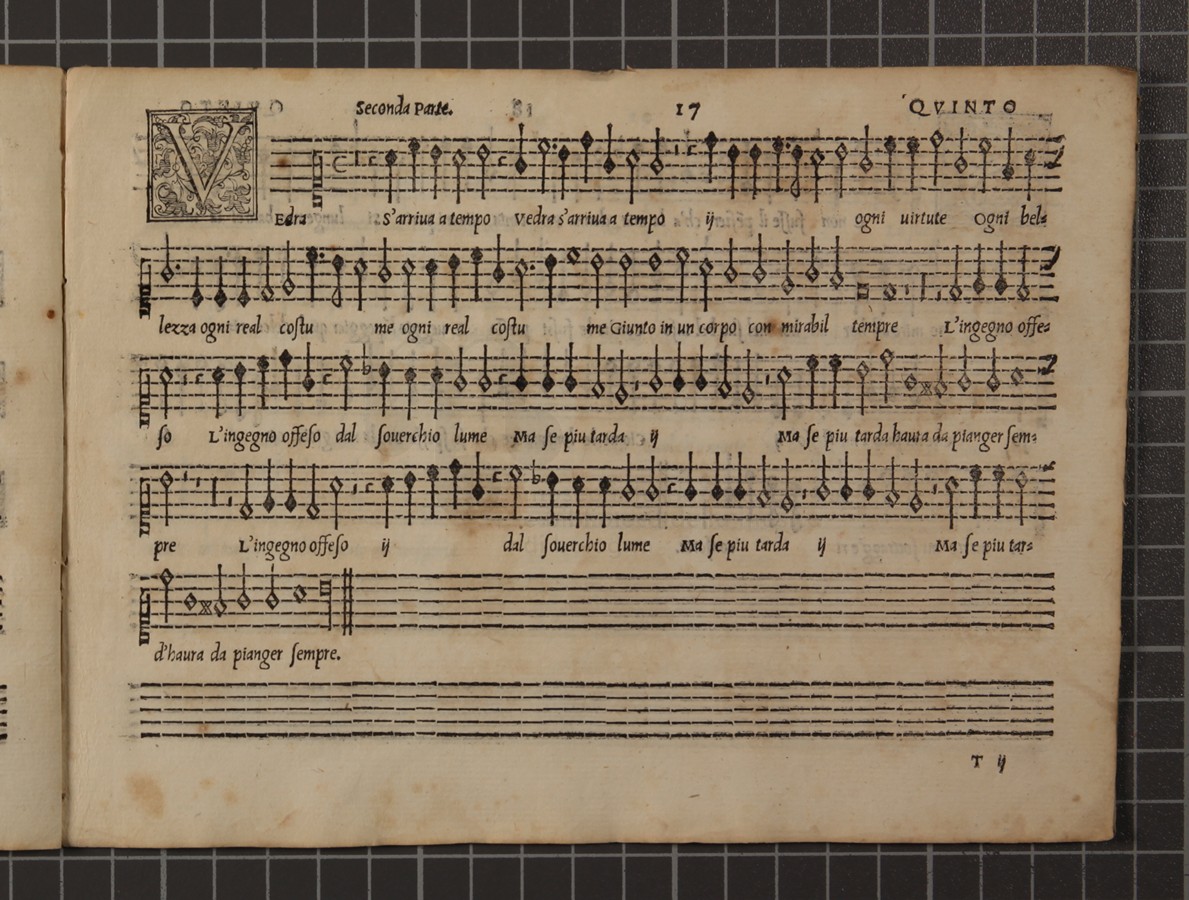 Seconda Parte. 17 QVINTO
VEdra S'arriua a tempo Vedra s'arriua a tempo ij ogni uirtute Ogni bel=
lezza ogni real costu me ogni real costu me Giunto in un corpo con mirabil tempre L'ingegno offe=
so L'ingegno offeso dal souerchio lume Ma se piu tarda ij Ma se piu tarda haura da pianger sem=
pre L'ingegno offeso ij dal souerchio lume Ma se piu tarda ij Ma se piu tar=
d'haura da pianger sempre.
T ij